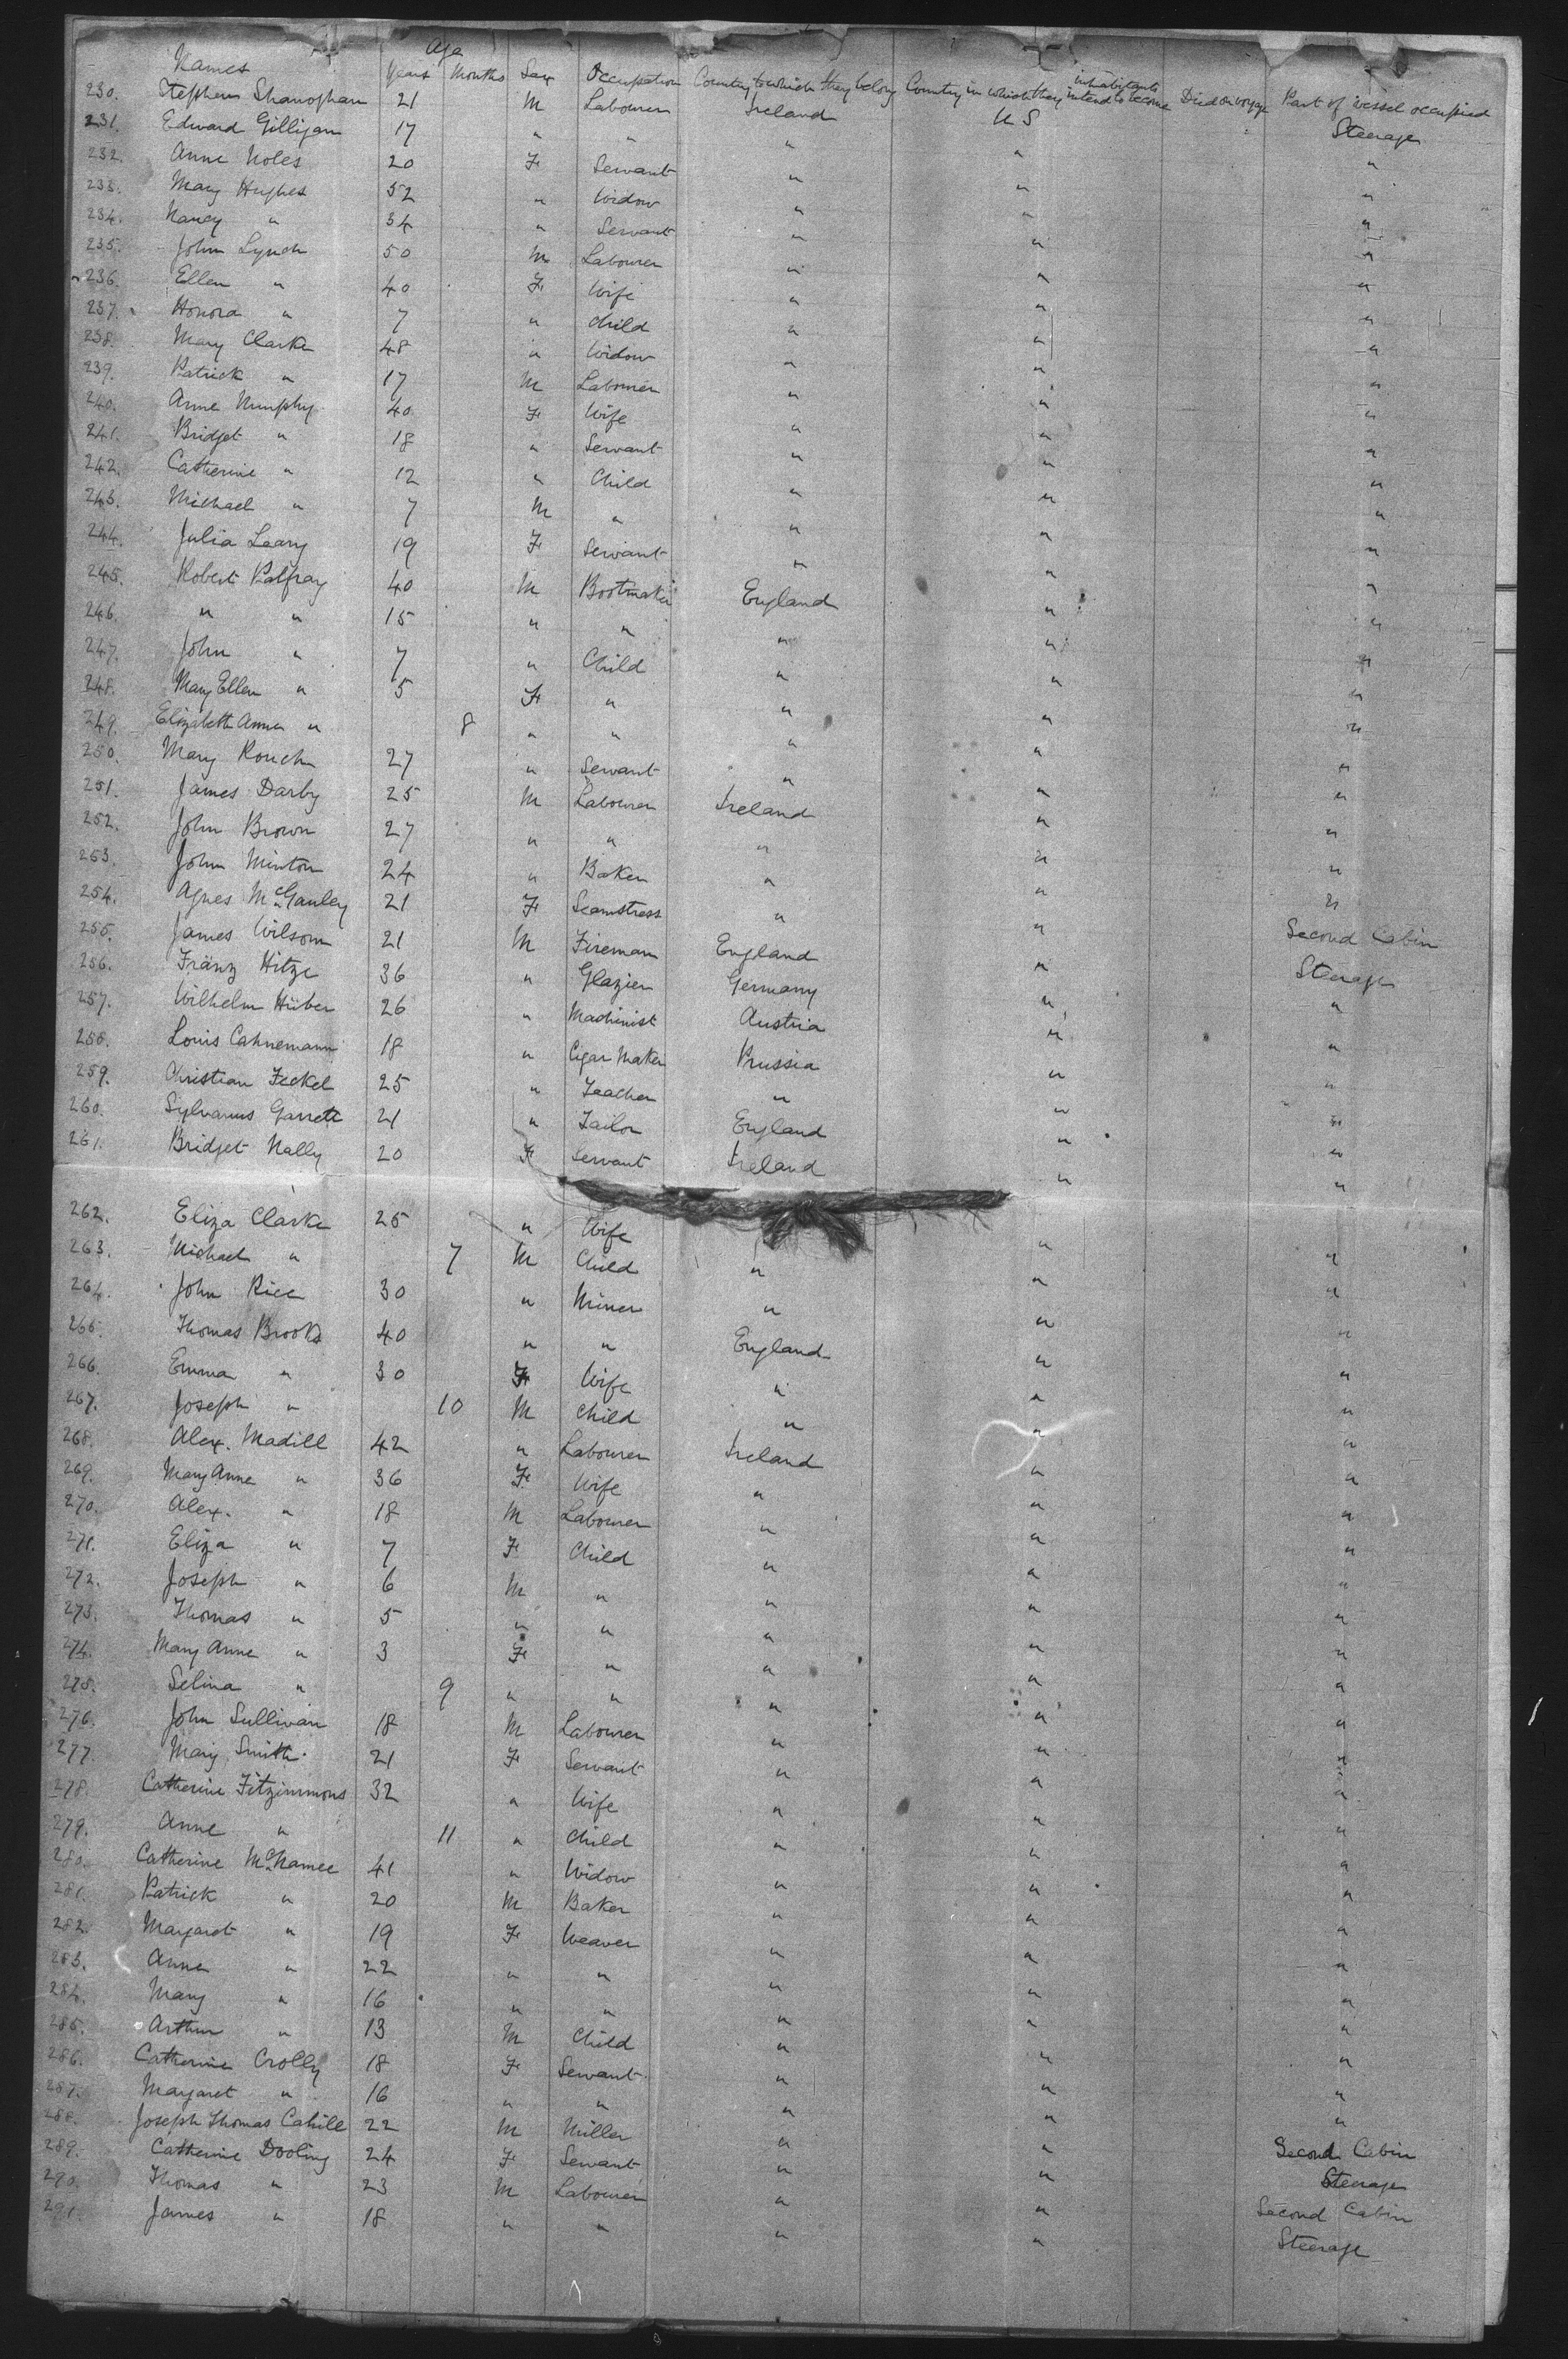 Names Age Years Months Sex Occupation Country to which they belong Country in which they intend to become inhabitants Died on voyage Part of vessel occupied
230. Stephen Shanoghan 21 M Labourer Ireland U S Steerage
231. Edward Gilligan 17 " " " " "
232. Anne Noles 20 F Servant " " "
233. Mary Hughes 52 " Widow " " "
234. Nancy " 34 " Servant " " "
235. John Lynch 50 M Labourer " " "
236. Ellen " 40 F Wife " " "
237. Honora " 7 " Child " " "
238. Mary Clarke 48 " Widow " " "
239. Patrick " 17 M Labourer " " "
240. Anne Murphy 40 F Wife " " "
241. Bridget " 18 " Servant " " "
242. Catherine " 12 " Child " " "
243. Michael " 7 M " " " "
244. Julia Leary 19 F Servant " " "
245. Robert Palfray 40 M Bootmaker England " "
246. " " 15 " " " " "
247. John " 7 " Child " " "
248. Mary Ellen " 5 F " " " "
249. Elizabeth Anne " 8 " " " " "
250. Mary Rouch 27 " Servant " " "
251. James Darby 25 M Labourer Ireland " "
252. John Brown 27 " " " " "
253. John Minton 24 " Baker " " "
254. Agnes McGauley 21 F Seamstress " " "
255. James Wilson 21 M Fireman England " Second Cabin
256. Fränz Hitze 36 " Glazier Germany " Steerage
257. Wilhelm Hüber 26 " Machinist Austria " "
258. Louis Cahnemann 18 " Cigar Maker Prussia " "
259. Christian Feckel 25 " Teacher " " "
260. Sylvanus Garrett 21 " Tailor England " "
261. Bridget Nally 20 F Servant Ireland " "
262. Eliza Clarke 25 " Wife " "
263. Michael " 7 M Child " " "
264. John Rice 30 " Miner " " "
265. Thomas Brooks 40 " " England " "
266. Emma " 30 F Wife " " "
267. Joseph " 10 M Child " " "
268. Alex. Madill 42 " Labourer Ireland " "
269. Mary Anne " 36 F Wife " " "
270. Alex. " 18 M Labourer " " "
271. Eliza " 7 F Child " " "
272. Joseph " 6 M " " " "
273. Thomas " 5 " " " " "
274. Mary Anne " 3 F " " " "
275. Selina " 9 " " " " "
276. John Sullivan 18 M Labourer " " "
277. Mary Smith 21 F Servant " " "
278. Catherine Fitzimmons 32 " Wife " " "
279. Anne " 11 " Child " " "
280. Catherine McNamee 41 " Widow " " "
281. Patrick " 20 M Baker " " "
282. Margaret " 19 F Weaver " " "
283. Anne " 22 " " " " "
284. Mary " 16 " " " " "
285. Arthur " 13 M Child " " "
286. Catherine Crolly 18 F Servant " " "
287. Margaret " 16 " " " " "
288. Joseph Thomas Cahill 22 M Miller " " Second Cabin
289. Catherine Dooling 24 F Servant " " Steerage
290. Thomas " 23 M Labourer " " Second Cabin
291. James " 18 " " " " Steerage